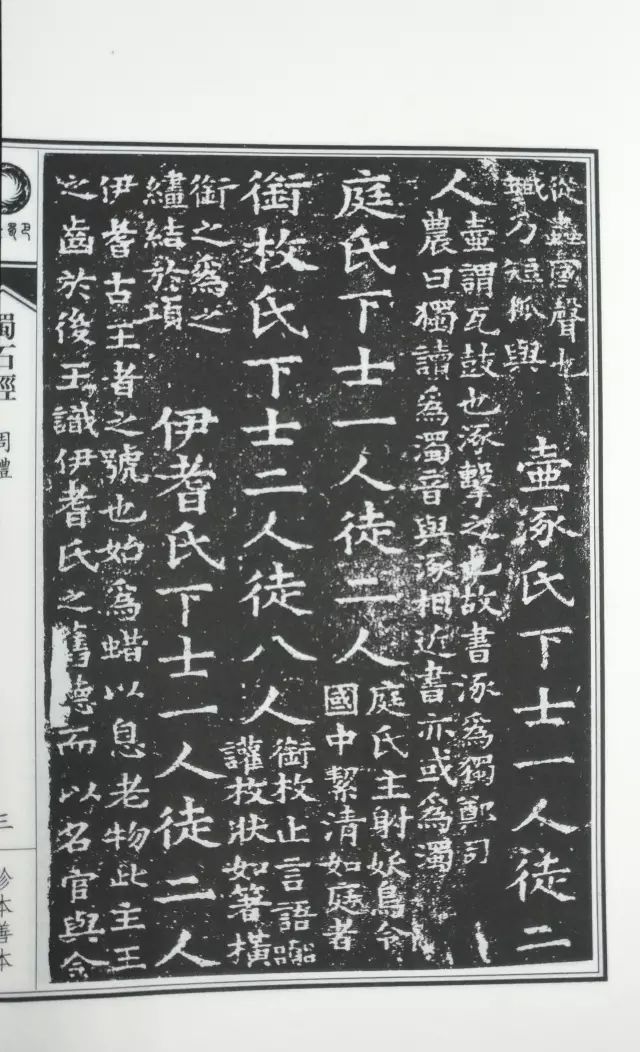 從䖵國聲也
蜮乃短狐與
壷涿氏下士一人徒二
人
壷謂瓦鼓也涿擊之也故書涿爲獨鄭司
農曰獨讀爲濁音與涿相近書亦或爲濁
庭氏下士一人徒二人
庭氏主射妖鳥令
國中絜清如庭者
銜枚氏下士二人徒八人
銜枚止言語嚻
讙枚狀如箸橫
銜之爲之
繣結於項
伊耆氏下士一人徒二人
伊耆古王者之號也始爲蜡以息老物此主王
之齒杖後王識伊耆氏之舊德而以名官與令
蜀石經 周禮
三
珍本善本